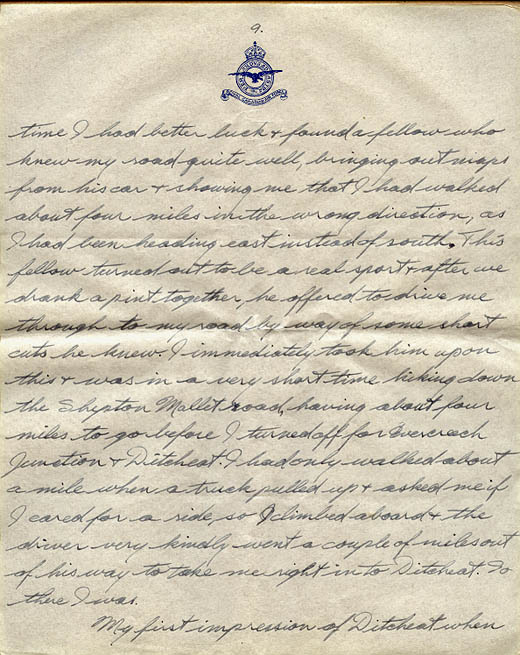 9.
time I had better luck & found a fellow who
knew my road quite well, bringing out maps
from his car & showing me that I had walked
about four miles in the wrong direction, as
I had been heading east instead of south. This
fellow turned out to be a real sport & after we
drank a pint together, he offered to drive me
through to my road by way of some short
cuts he knew. I immediately took him upon
this & was in a very short time hiking down
the Shepton Mallet road, having about four
miles to go before I turned off for Evercreech
Junction & Ditcheat. I had only walked about
a mile when a truck pulled up & asked me if
I cared for a ride, so I climbed aboard & the
driver very kindly went a couple of miles out
of his way to take me right in to Ditcheat. So
there I was.
My first impression of Ditcheat when